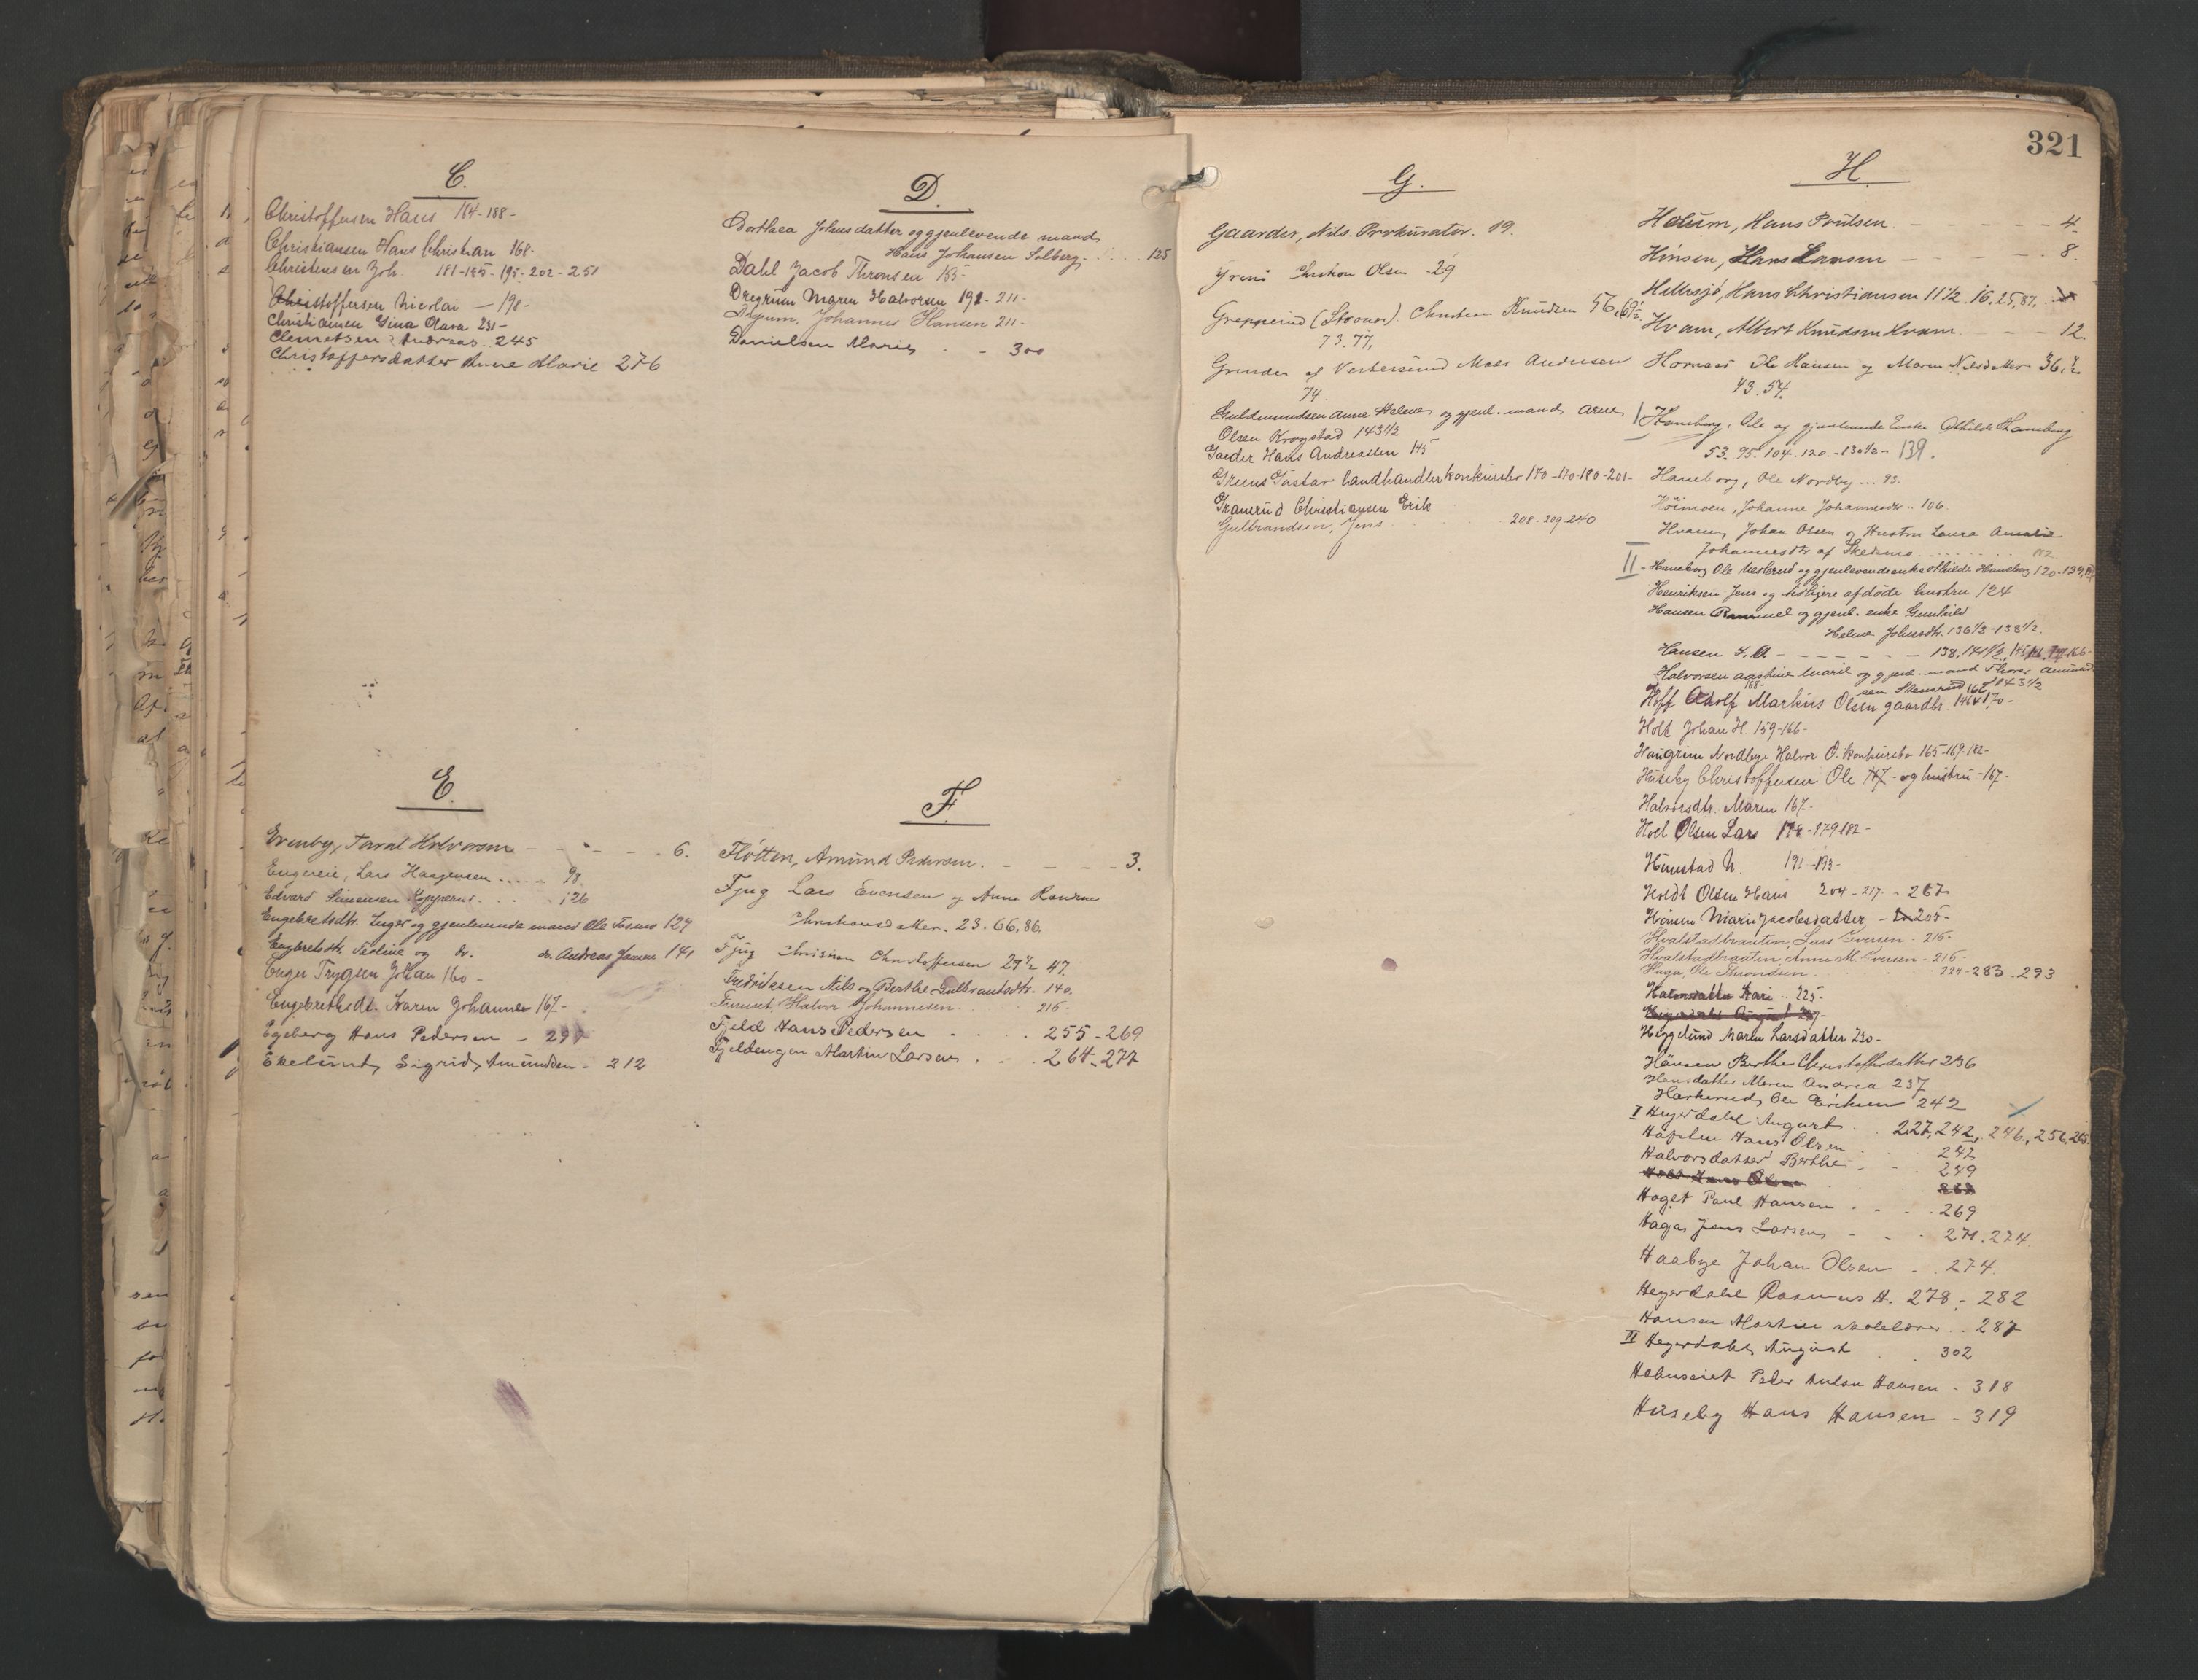 C.
Christoffersen Hans 184-188-
Christiansen Hans Christian 168-
Christensen Joh. 181-185-195-202-251
Christoffersen Nicolai — 198-
Christiansen Gina Olava 231-
Clemetsen Andreas. 245
Christoffersdatter Anne Marie 276
D.
Dorthea Johnsdatter og gjenlevende mand
Hans Johansen Solberg. 125
Dahl Jacob Thronsen 155-
Dregrum Maren Halvorsen 191-211-
Johannes Hansen 211-
Danielsen Marie - - 300
E.
Evenby, Taral Halvorsen - - - - 6.
Engereie, Lars Haagensen 98.
Edvard Simensen 126
Engebretsdtr. Inger og gjenlevende mand Ole 127
Engebretsdtr. og dr. dr. Andreas 141
Enger Trygsen Johan 160 -
Engebretsdt. Karen Johanne 167-
Egeberg Hans Pedersen - 297
Ekelund, Sigrid Amundsen - 312
F.
Fløtten, Amund Pedersen. - - - 3.
Fjug Lars Evensen og Anne
Christiansdatter. 23. 66. 86.
Fjug Christian Christoffersen 27½ 47.
Fredriksen Nils og Berthe Gulbrandsdtr. 140.
Halvor Johannesen 216-
Fjeld Hans Pedersen - 255-269
Fjeldengen Martin Larsen . - . 264-277
321
G.
Gaarder, Nils. Prokurator. 19.
Christian Olsen 29
Christian Knudsen 56, 67½
73. 77,
Grinder af Vestersund Mads Andersen
74.
Guldmundsen Anne Helene og gjenl. mand Arne
Olsen Krogstad 143½
Gaeder Hans Andreassen 145
Landhandler konkursbo 170-170-180-201-
Granerud Christiansen Erik
Gulbrandsen, Jens 208-209-240
H.
Holum, Hans Poulsen - - - - - 4.
Hansen, Hans Larsen - - - - 8.
Hellesjø, Hans Christiansen 11½. 16, 25, 87.
Hvam, Albert Knudsen Hvam. - - - 12.
Hornaas Ole Hansen og Maren Nilsdatter 36,
43. 54.
I Haneborg, Ole og gjenlevende Enke Othilde Haneborg
53. 95. 104. 120. - 130½ - 139.
Haneborg, Ole Nordby ... 93.
Høimoen, Johanne Johannesdtr. 106.
Johan Olsen og Hustru Laura Amalie
Johannesdtr af Skedsmo 112
II - Haneborg Ole og gjenlevende enke Othilde Haneborg 120-139,
Henriksen Jens og afdøde hustru 124
Hansen og gjenl. enke Gunhild
Helene Johnsdtr. 136½-138½.
Halvorsen Marie og gjenl. mand Thorer Amund
sen 143½
Hoff Adolf Markus Olsen gaardbr. 170-
Holt Johan H. 159-166-
Haugrim Nordbye Halvor O. konkursbo 165-169-182-
Huseby Christoffersen Ole 147- og hustru -167-
Halvorsdtr. Maren 167-
Hoel Olsen Lars 178-179-182-
Himstad N. 191-193-
Holdt Olsen Hans 204-217 - 267
Hansen Marie Jacobsdatter - 205-
Hvalstadbraaten, Lars Iversen - 216-
Hvalstadbraaten Anne M. Iversen - 216-
Haga, Ole Throndsen 224-283-293
Kari .. 225-
Heggelund Maren Larsdatter 230-
Hansen Berthe Christoffersdatter 236
Hansdatter Maren Andrea 237
Ole Eriksen 242
I Heyerdahl August . . 227, 242, 246, 256, 265
Hans Olsen 247
Halvorsdatter Berthe - - . 249
Haget Paul Hansen . - . 269
Haga Jens Larsen - - . 271. 274
Haabye Johan Olsen - . 274.
Heyerdahl Rasmus H. 278 - 282
Hansen Martin skolelærer .. 287
II Heyerdahl August . . 302
Peder Anton Hansen - 318
Huseby Hans Hansen - 319